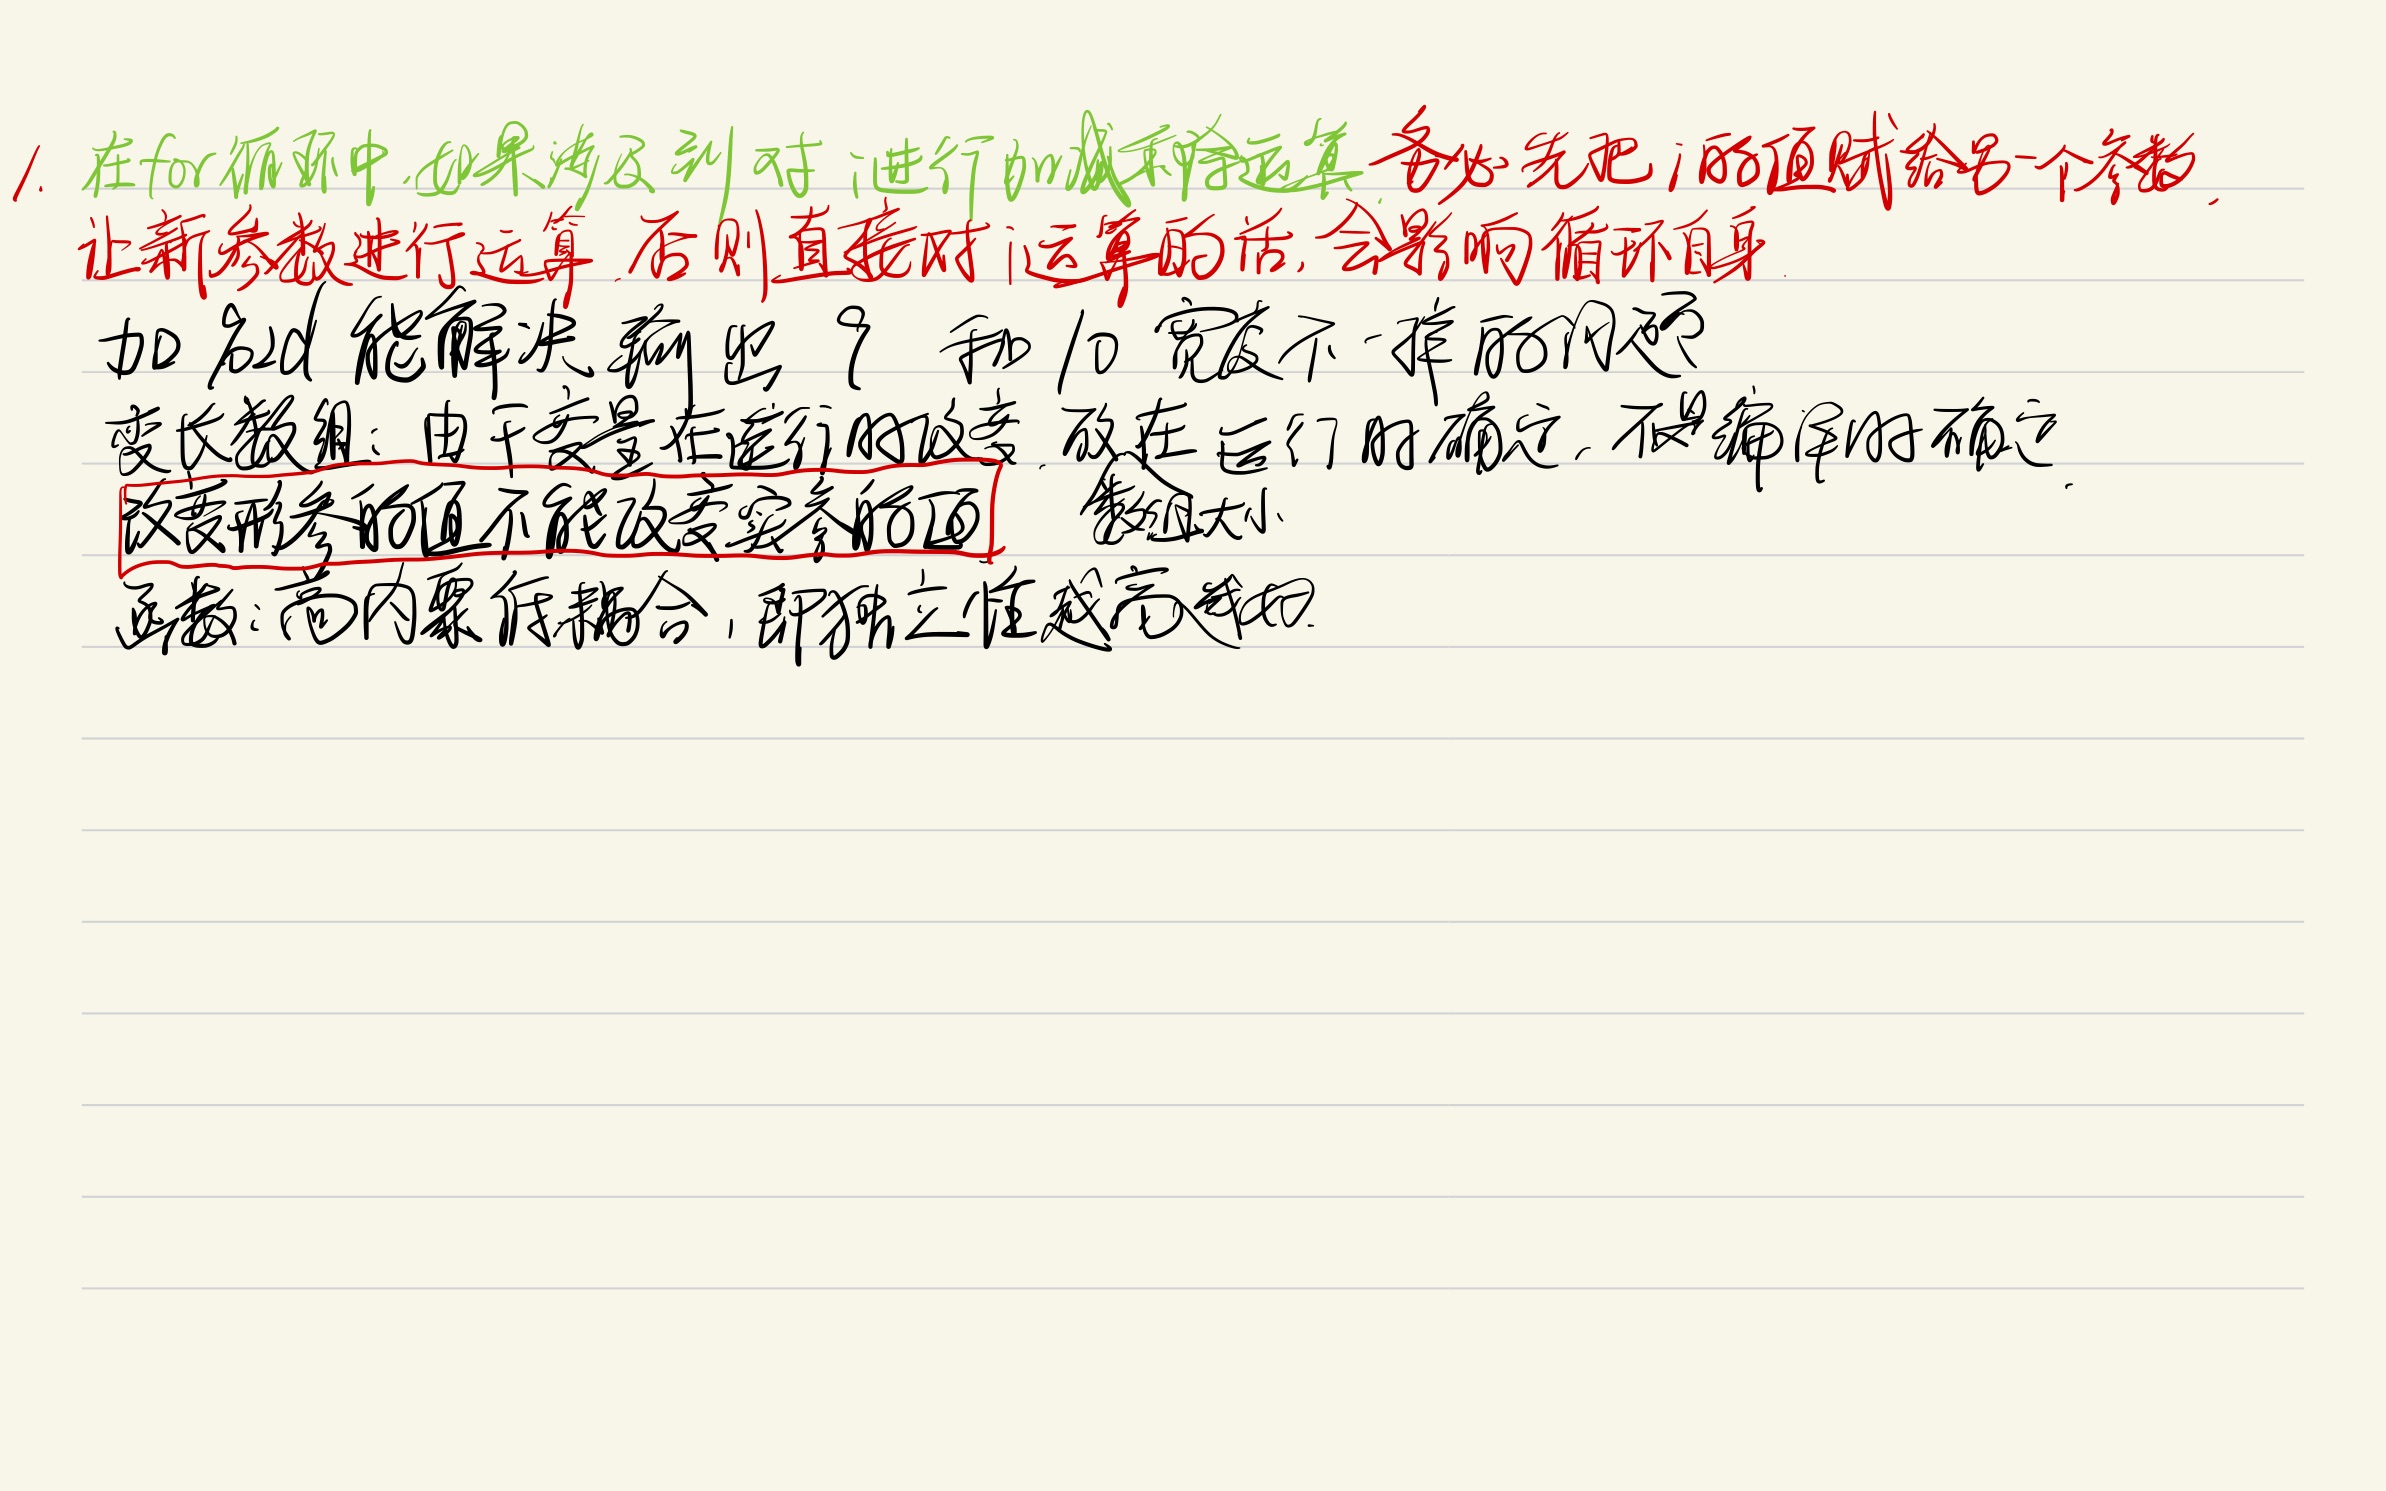 1. 在for循环中,如果涉及到对i进行加减乘除运算,务必先把i的值赋给另一个参数,
让新参数进行运算.否则直接对i运算的话,会影响循环自身.
加 %2d 能解决输出 9 和 10 宽度不一样的问题
变长数组:由于变量在运行时改变.故在运行时确定,不是编译时确定.
数组大小
改变形参的值不能改变实参的值
函数:高内聚低耦合,即独立性越高越好.